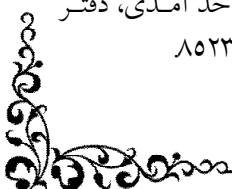 حد آمدی، دفتر
۸۵۲۳